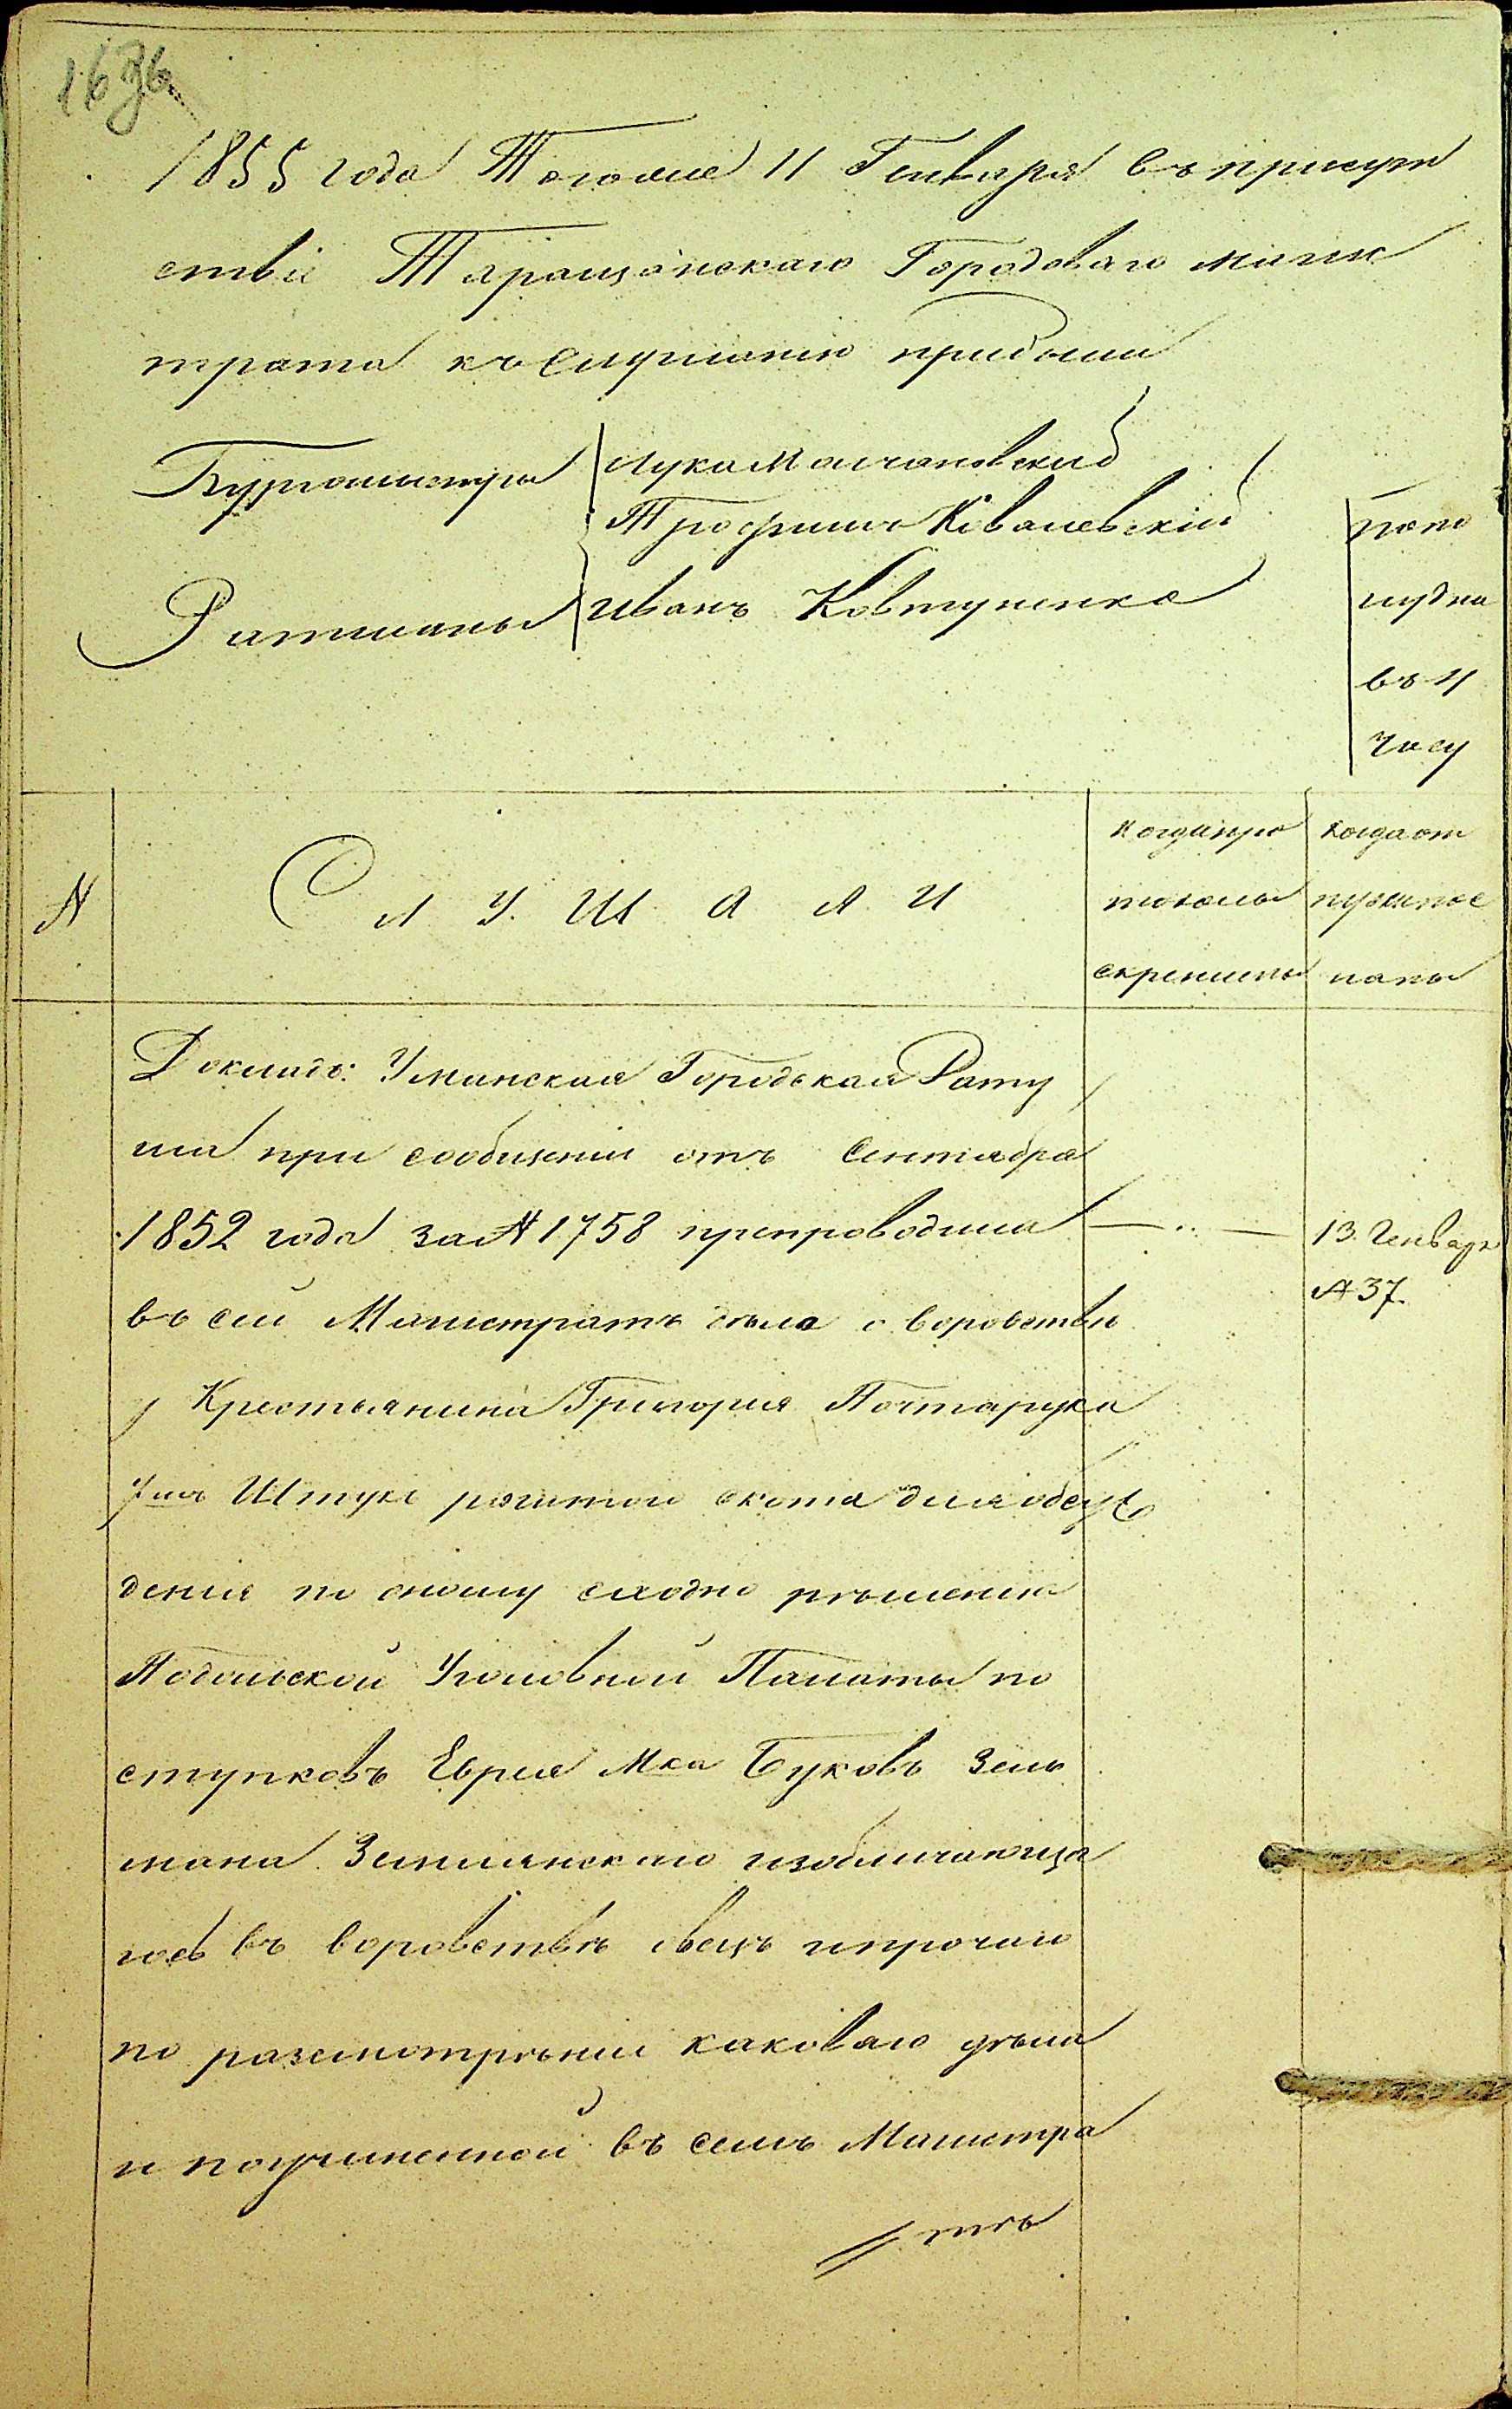 1855 года Тогоже 11 Генваря въ присут
ствіе Таращанскаго Городоваго магис
трата къ слушанію прибыли
Бургомистры Лука Молчановский
Трофимъ Ковалевскій
Ратманы Иванъ Ковтуненко
попо
лудна
въ 4
часу
N
Слушали
когда про
токолы
скреплены
когда от
пуск
паны
Докладъ: Уманская Городская Рату
ша при сообщеніи отъ Сентября
1852 года за N 1758 препроводила
въ сей Магистратъ дѣла о воровствѣ
у Крестьянина Григорія Почтарука
7ми Штукъ рогатого скота для обсуж
денія по оному сходно рѣшенію
Подольской Уголовной Палаты по
ступковъ Еврея Мка Буковъ Зель
мана Землянскаго изобличающа
гось въ воровствѣ овецъ и прочаго
по разсмотрѣніи каковаго дѣла
и поучиненной въ семъ Магистра
тѣ
13. Генваря
N 37.